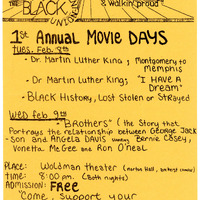 THE BLACK UNION
& walkin' proud
1st Annual Movie DAYS
TUES. Feb. 8th
- Dr. Martin Luther King ; Montgomery to Memphis
- Dr. Martin Luther King; "I HAVE A Dream"
- BLACK HISTORY, Lost Stolen or Strayed
WED Feb 9th
- "Brothers" (the Story that
Portrays the relationship between George Jack-
son and Angela DAVIS (starring Bernie Casey,
Vonetta McGee and Ron O'Neal
PLACE: Woldman theater
TIME: 8:00 pm. (Both nights)
ADMISSION: FREE
"Come, support your